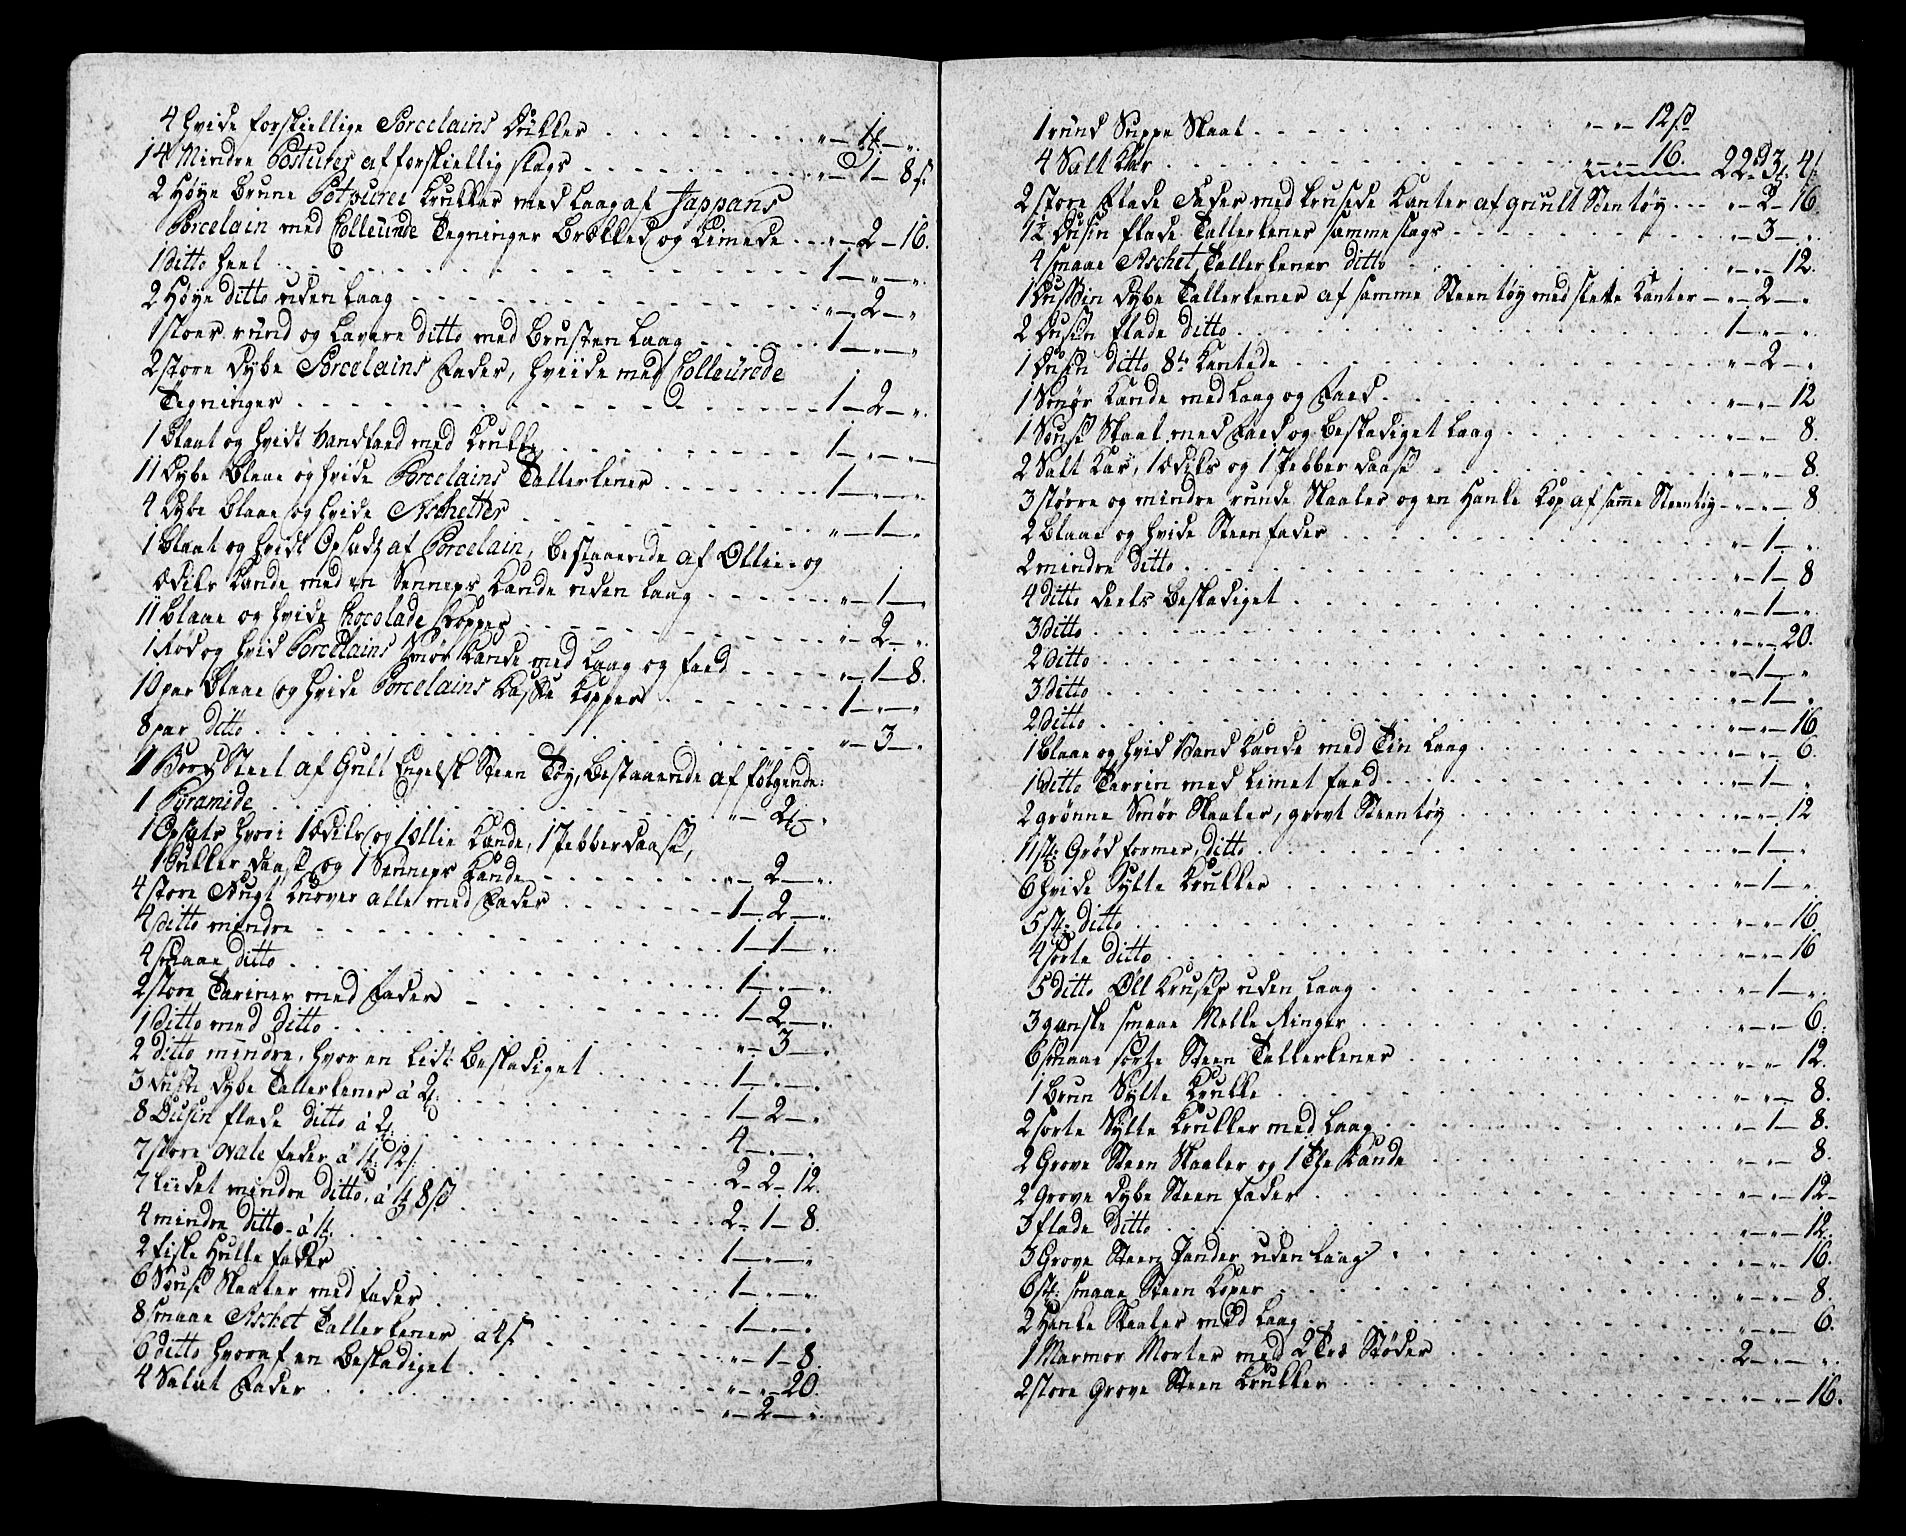 4 hvide forskiellige Porcelains Dukker . . . . . . . „ — 1 — „.
14 Mindre Postures af forskiellig slags . . . . . . . „ — 1 — 8 s.
2 Høye brune Potpuree Krukker med Laag af Jappans
Porcelain med Colleurede Tegninger brøkked og Limede . . . „ — 2 — 16.
1 ditto heel . . . . . . . 1 — „ — „.
2 Høye ditto uden Laag . . . . . . . „ — 2 — „
1 stoer rund og Lavere ditto med brusten Laag . . . . . 1 — „ — „
2 store dybe Porcelains Fader, hviide med Colleurede
Tegninger . . . . . . . 1 — 2 — „.
1 blaat og hvidt Vandfaed med Krukke . . . . . . . 1 — „ — „
11 Dybe blaae og hvide Porcelains Tallerkener . . . . . 1 — „ — „
4 dybe blaae og hvide Aschetter . . . . . . . „ — 1 — „
1 blaat og hvidt Opsadz af Porcelain, bestaaende af Ollie- og
Ædike Kande med en Senneps Kande uden Laag . . . . . „ — 1 — „
11 blaae og hvide Chocolade Kopper . . . . . . . „ — 2 — „.
1 Rød og hvid Porcelains Smør Kande med Laag og faed . . . . „ — 1 — 8.
10 par blaae og hvide Porcelains Caffe Kopper . . . . . 1 — „ — „
8 par ditto . . . . . . . „ — 3 — „
1 Bord Steel af Guult Engelsk Steen Tøy, bestaaende af følgende:
1 Pyramide . . . . . . . „ — 2 — „.
1 Opsats hvori 1 Ædike og 1 Ollie Kande, 1 Pebberdaase,
1 Sukker daase og 1 Senneps Kande . . . . . „ — 2 — „.
4 store Frugt Kurver alle med Fader . . . . . 1 — 2 — „.
4 ditto mindre . . . . . . . 1 — 1 — „.
4 smaae ditto . . . . . . . 1 — „ — „.
2 store Tariner med Fader . . . . . . . 1 — 2 — „.
1 ditto med ditto . . . . . . . „ — 3 — „.
2 ditto mindre, hvor en lidt beskadiget . . . . . 1 — „ — „.
3 Dusin dybe Tallerkener á 2 . . . . . . . 1 — 2 — „
8 Dusin flade ditto á 2 . . . . . . . 4 — „ — „
7 store ovale fader á 1 12 s. . . . . . . 2 — 2 — 12.
7 Liidet mindre ditto, á 1 8 s . . . . . . . 2 — 1 — 8.
4 mindre ditto á 1 . . . . . . . 1 — „ — „
2 fiske Hulle fader . . . . . . . 1 — „ — „.
6 Souse Skaaler med fader . . . . . . . 1 — „ — „
8 smaae Aschet Tallerkener á 4 s . . . . . . . „ — 1 — 8.
6 ditto hvoraf en beskadiget . . . . . . . „ — „ — 20.
4 Salat Fader . . . . . . . „ — 2 — „.
1 rund Suppe Skaal . . . . . . . „ — „ — 12 s
4 Salt Kar . . . . . . . „ — „ — 16. 22 d 3 4 s
2 store flade Fader med krusede Kanter af guult Steentøy . . . „ — 2 — 16.
1½ Dusin flade Tallerkener samme slags . . . . . . . „ — 3 — „.
4 smaae Aschet Tallerkener ditto . . . . . . . „ — „ — 12.
1 Dussin dybe Tallerkener af samme Steentøy med slette Kanter — „ — 2 — „
2 Dusin flade ditto . . . . . . . 1 — „ — „.
1 Dusin ditto 8te Kantede . . . . . . . „ — 2 — „.
1 Smør Kande med Laag og Faed . . . . . . . „ — „ — 12
1 Souse Skaal med Faed og beskadiget Laag . . . . . . . „ — „ — 8.
2 Salt Kar, 1 Ædike og 1 Pebber daase . . . . . . . „ — „ — 8
3 større og mindre runde Skaaler og en Hanke Kop af samme Steentøy — „ — „ — 8
2 blaae og hvide Steen fader . . . . . . . „ — 1 — „.
2 mindre ditto . . . . . . . „ — 1 — 8
4 ditto deels beskadiget . . . . . . . „ — 1 — „.
3 ditto . . . . . . . „ — „ — 20.
2 ditto . . . . . . . „ — 1 — „
3 ditto . . . . . . . „ — 1 — „.
2 ditto . . . . . . . „ — „ — 16
1 blaae og hvid Vand Kande med Tin Laag . . . . . . . „ — „ — 6.
1 ditto Terrin med Limet faed . . . . . . . „ — 1 — „
2 grønne Smør Skaaler, grovt Steentøy . . . . . . . „ — „ — 12
11 st: Grød former, ditto . . . . . . . „ — 1 — „
6 hvide Sylte Krukker . . . . . . . „ — 1 — „.
5 st: ditto . . . . . . . „ — „ — 16.
4 sorte ditto . . . . . . . „ — „ — 16
5 ditto Øll Kruse uden Laag . . . . . . . „ — 1 — „.
3 ganske smaae Melke Ringer . . . . . . . „ — „ — 6.
6 smaae sorte Steen Tallerkener . . . . . . . „ — „ — 12.
1 brun Sylte Krukke . . . . . . . „ — „ — 8.
2 sorte Sylte Krukker med Laag . . . . . . . „ — 1 — 8.
2 Grove Steen Skaaler og 1 The Kande . . . . . . . „ — „ — 8.
2 Grove dybe Steen fader . . . . . . . „ — „ — 12 —
3 flade ditto . . . . . . . „ — „ — 12.
3 Grove Steen Pander uden Laag . . . . . . . „ — „ — 16.
6 st: smaae Steen Koper . . . . . . . „ — „ — 8.
2 Hanke Skaaler med Laag . . . . . . . „ — „ — 6.
1 Marmor Morter med 2 Træ Støder . . . . . . . 2 — „ — „.
2 store Grove Steen Krukker . . . . . . . „ — „ — 16.